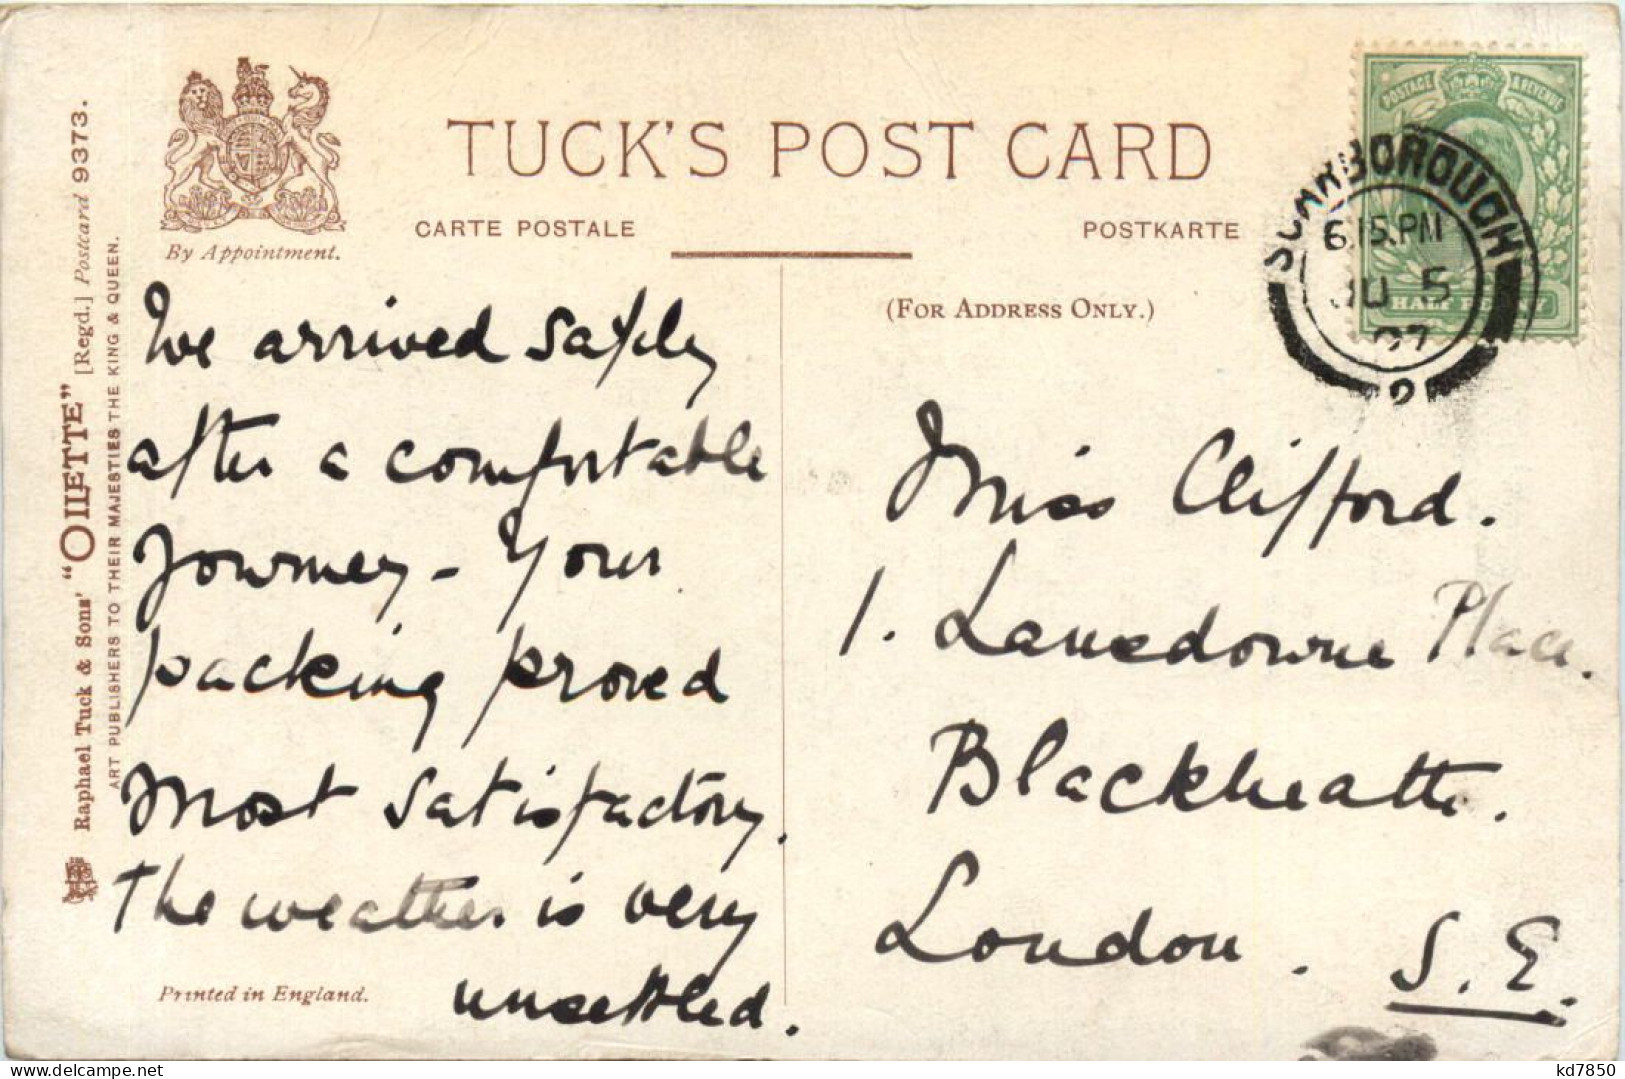 TUCK'S POST CARD
CARTE POSTALE
POSTKARTE
By Appointment.
(FOR ADDRESS ONLY.)
Raphael Tuck & Sons' "OILETTE" [Regd.] Postcard 9373.
ART PUBLISHERS TO THEIR MAJESTIES THE KING & QUEEN.
We arrived safely
after a comfortable
Journey - Your
packing proved
most satisfactory.
The weather is very
unsettled.
Printed in England.
POSTAGE & REVENUE
HALF PENNY
SCARBOROUGH
6.15.PM
JU 5
07
2
Miss Clifford.
1. Lansdowne Place.
Blackheath.
London. S.E.
kd7850